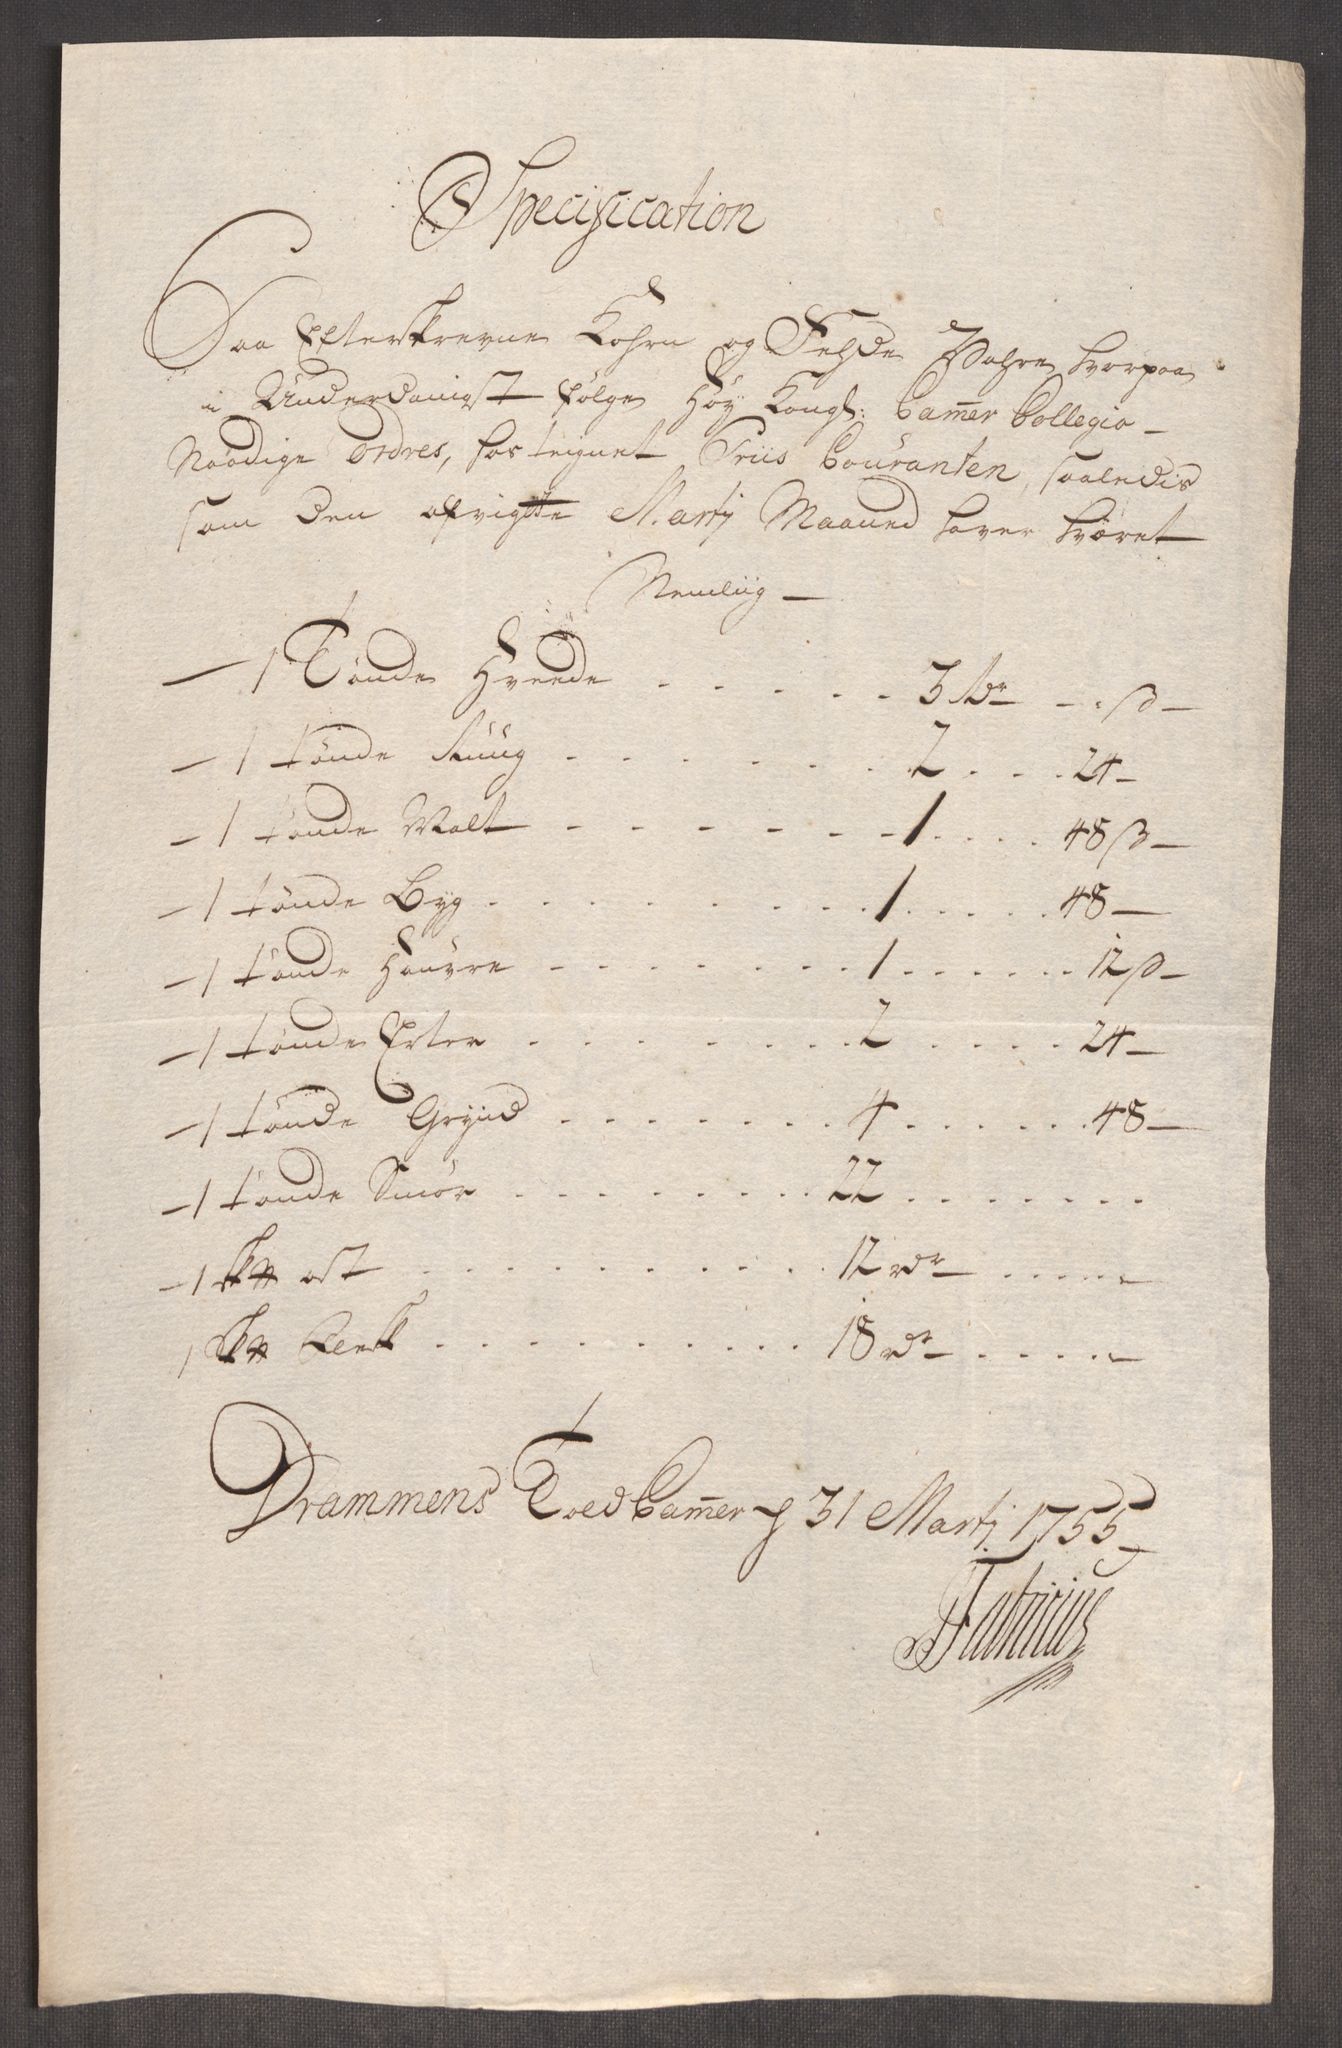 Specification
Paa Efterskrevne Kohrn og Fehde Wahre, hvorpaa
i Underdanigst følge Höy Kongl: Cam̄er Collegio
Naadige Ordres, hos teignet Priis Couranten, saaledis
som den afvigte Martij Maaned haver været
Nemlig
1 Tønde Hveede 3 Rdr - ß
1 tønde Rüüg 2 24
1 tønde Malt 1 48 ß
1 tønde Byg 1 48
1 tønde Haüvre 1 12 ß
1 tønde Erter 2 24
1 tønde Grÿnd 4 48
1 tønde Smör 22
1 sk℔ ost 12 rdr
1 Sk℔ Flesk 18 rdr
Drammens Told Cam̄er d 31 Martj 1755
Fabricius